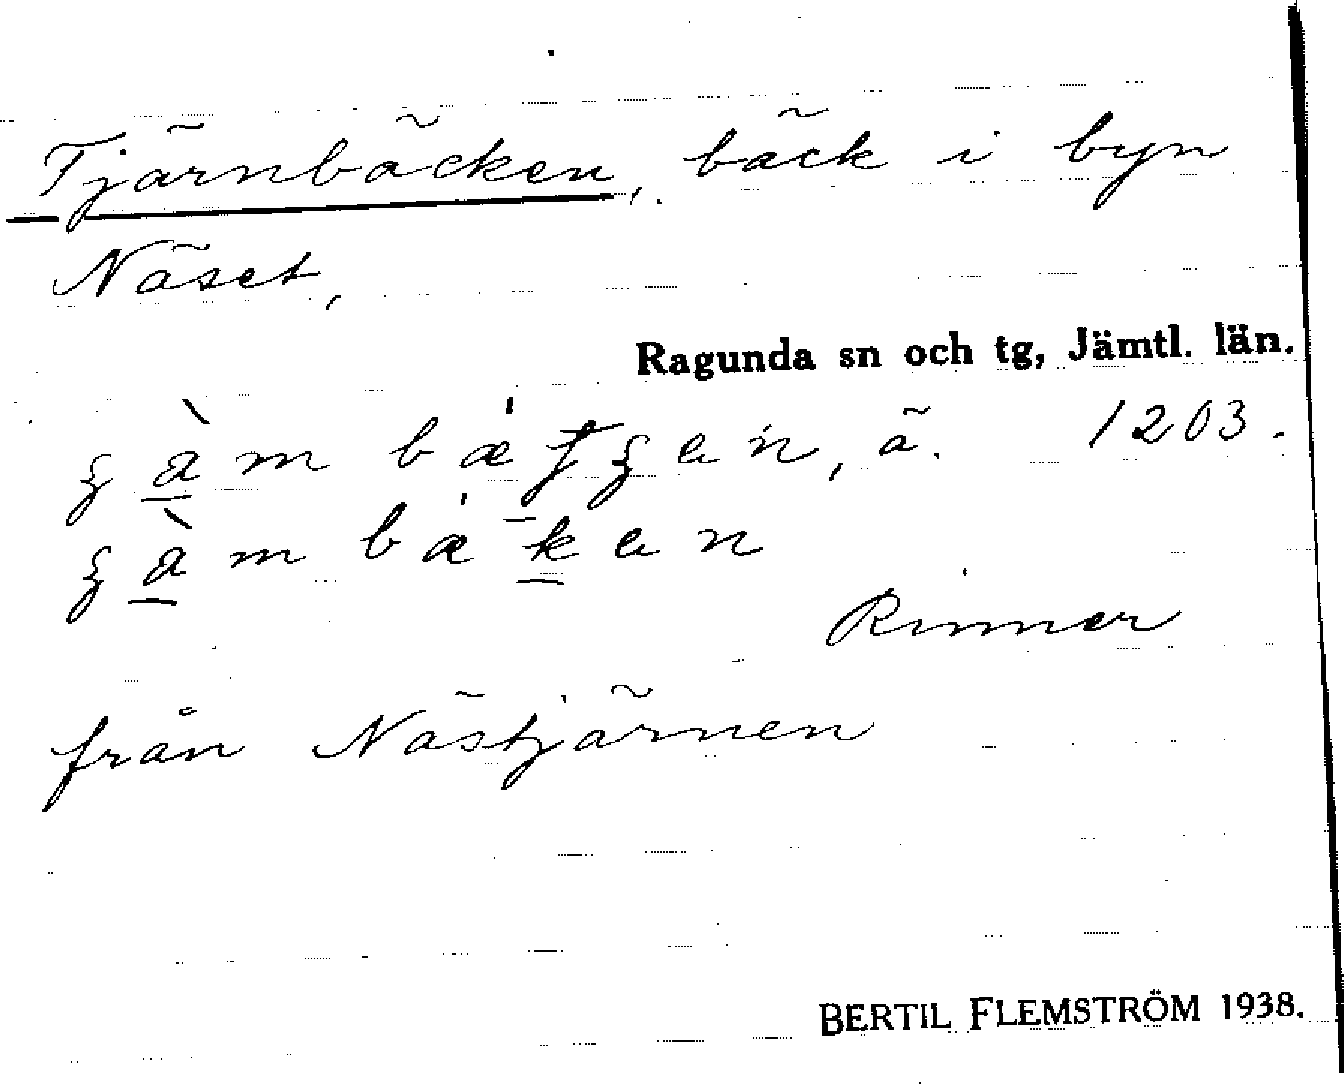 Tjärnbäcken, bäck i byn
Näset,
Ragunda sn och tg, Jämtl. län.
ä. 1203.
Rinner
från Nästjärnen
BERTIL FLEMSTRÖM 1938.